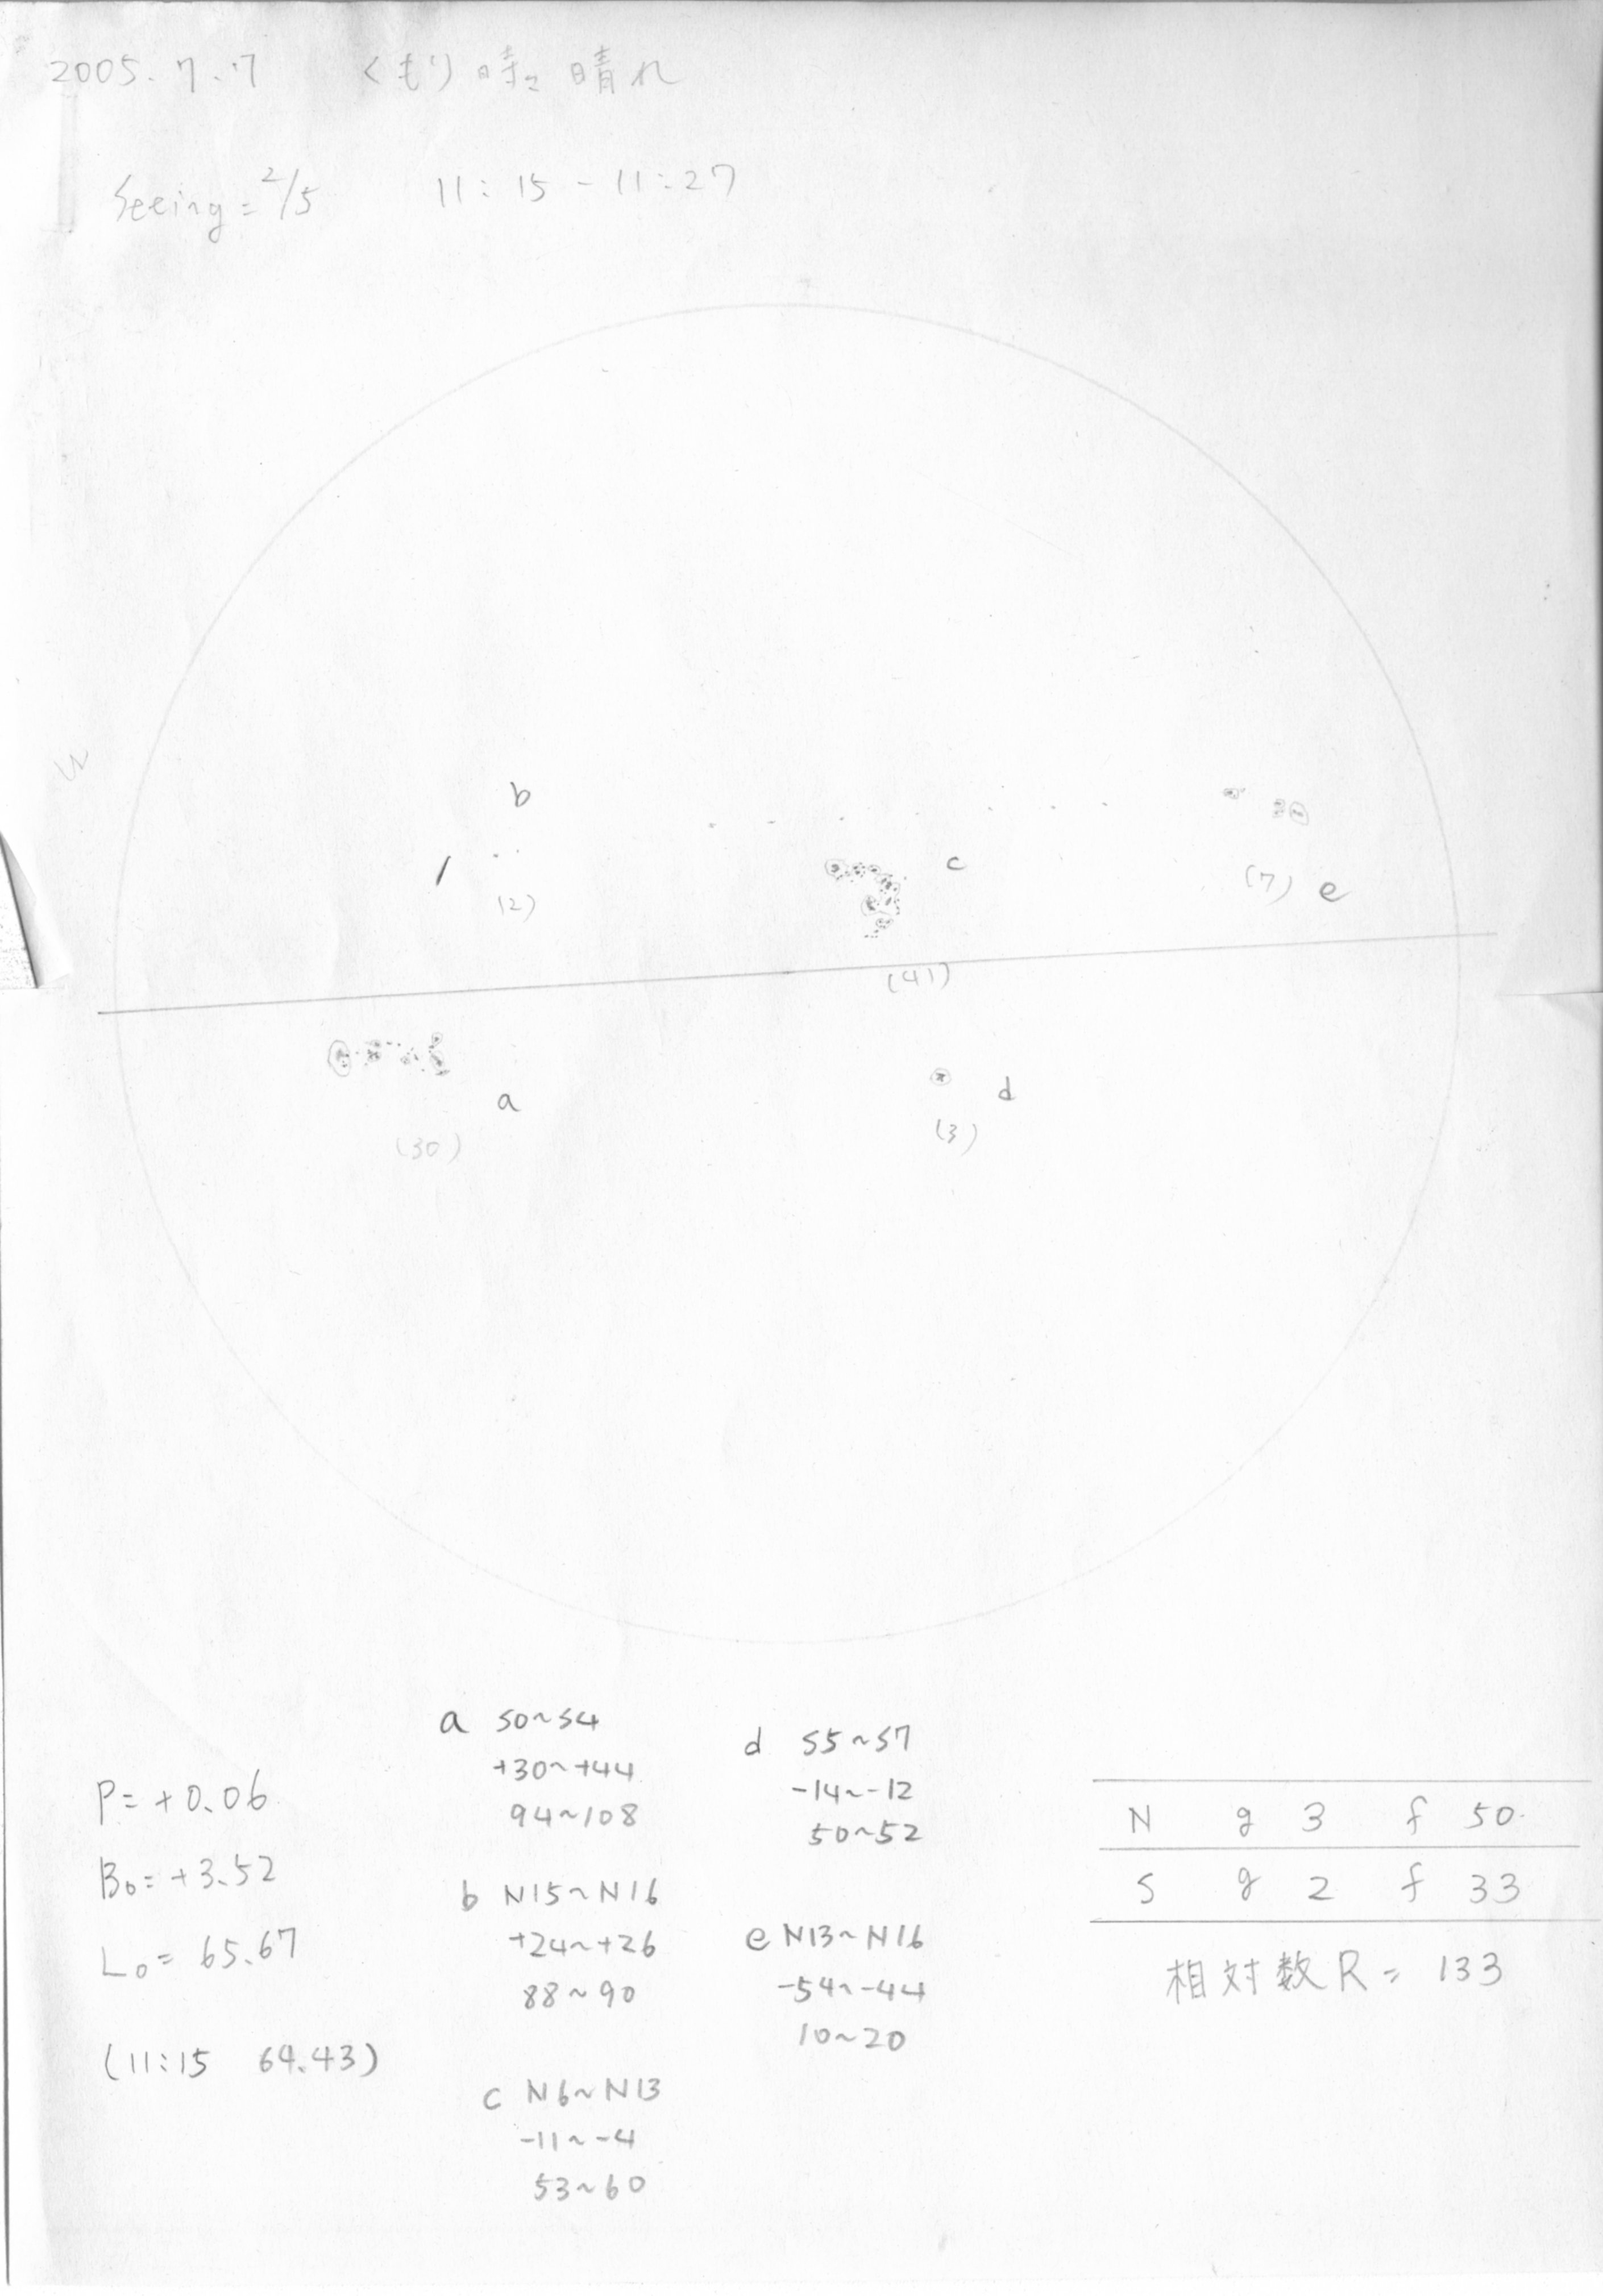 2005.7.7 くもり時々晴れ
Seeing = 2/5 11:15 - 11:27
W
b
(2)
c
(41)
(7) e
a
(30)
d
(3)
P = +0.06
B0 = +3.52
L0 = 65.67
(11:15 64.43)
a S0~S4
+30~+44
94~108
b N15~N16
+24~+26
88~90
c N6~N13
-11~-4
53~60
d S5~S7
-14~-12
50~52
e N13~N16
-54~-44
10~20
N g 3 f 50
S g 2 f 33
相対数 R = 133